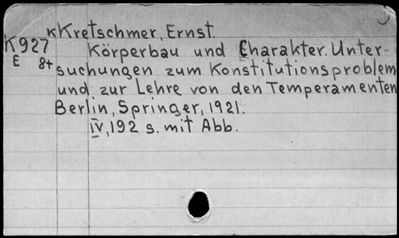 KKretschmer, Ernst.
K927 Körperbau und Charakter. Unter-
E 8+ suchungen zum Konstitutionsproblem
und zur Lehre von den Temperamenten
Berlin, Springer, 1921.
IV, 192 s. mit Abb.